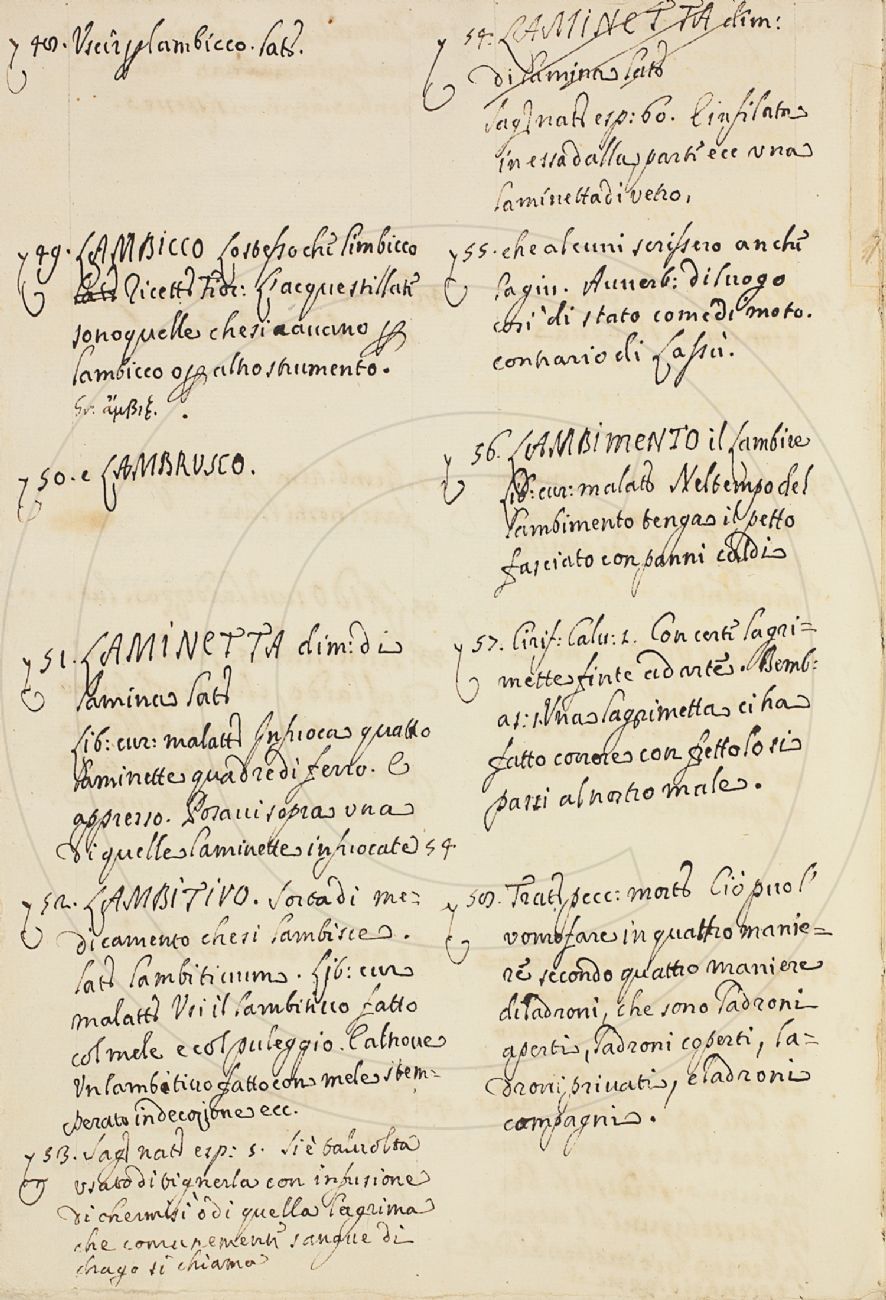 48. Uscir p lambicco. lat.
49. LAMBICCO Lo stesso che limbicco
lat. Ricett. Fior: L'acque stillate
sono quelle che si cavano p
lambicco o p altro strumento.
Gr: ἄμβιξ.
50. e LAMBRUSCO.
51. LAMINETTA dim: di
lamina lat.
Lib: cur: malatt. Infuoca quattro
laminette quadre di ferro. E
appresso. Posavi sopra una
di quelle laminette infuocate 54
52. LAMBITIVO. Sorta di me=
dicamento che si lambisce.
lat. lambitiuum. Lib: cur
malatt. Usi il lambitivo fatto
col mele e col puleggio. E altrove
Un lambitivo fatto con mele stem=
perato in decozione ecc.
53. Sagg. nat. esp: 5. Si è talvolta
usato di tignerla con infusione
di chermisì ò di quella lagrima
che comunemente sangue di
drago si chiama
54. LAMINETTA dim:
di lamina lat.
Sagg. nat. esp: 60. E infilata
in essa dalla parte ecc una
laminetta di vetro,
55. che alcuni scrissero anche
la giu. Avverb: di luogo
così di stato come di moto.
contrario di Lassù.
56. LAMBIMENTO il lambire
Lib: cur: malatt. Nel tempo del
lambimento tenga il petto
fasciato con panni caldi
57. Cirif: Calv: 1. Con certe lagri=
mette finte ad arte. Bemb:
as: 1. Una lagrimetta ci ha
fatto correre con gettolosi
passi al nostro male.
58. Tratt. pecc: mort. Ciò puo l'
uomo fare in quattro manie=
re secondo quattro maniere
di ladroni, che sono ladroni
aperti, ladroni coperti, la=
droni privati, e ladroni
compagni.